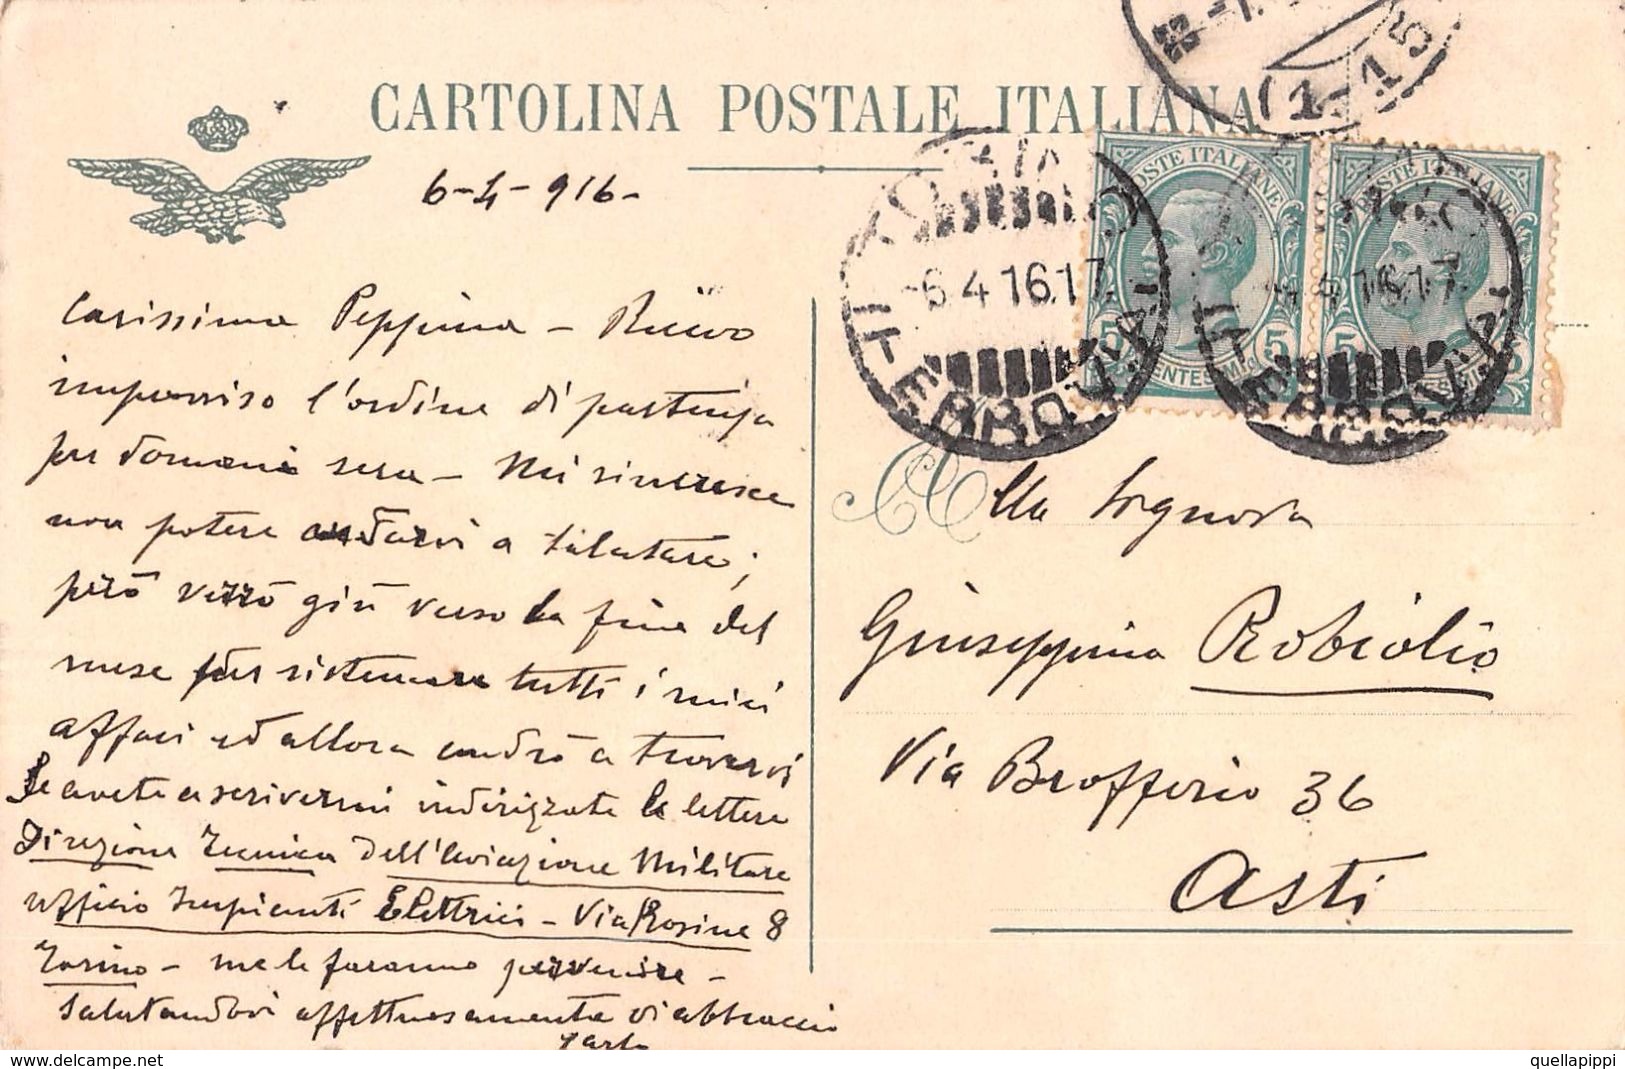 CARTOLINA POSTALE ITALIANA
6-4-916-
Carissima Peppina - Ricevo
improvviso l'ordine di partenza
per domani sera - Mi rincresce
non potere andarvi a salutare;
però verrò giù verso la fine del
mese per sistemare tutti i miei
affari ed allora andrò a trovarvi
Se avete a scrivermi indirizzate le lettere
Direzione Tecnica dell'Aviazione Militare
ufficio Impianti Elettrici - Via Rosine 8
Torino - me le faranno pervenire -
Salutandovi affettuosamente vi abbraccio
Carlo
(1-15
POSTE ITALIANE
5 5
CENTESIMI
POSTE ITALIANE
5
TORINO
6.4.16.17
FERROVIA
16.17
FERROVIA
Alla Signora
Giuseppina Robiolio
Via Brofferio 36
Asti
www.delcampe.net
quellapippi